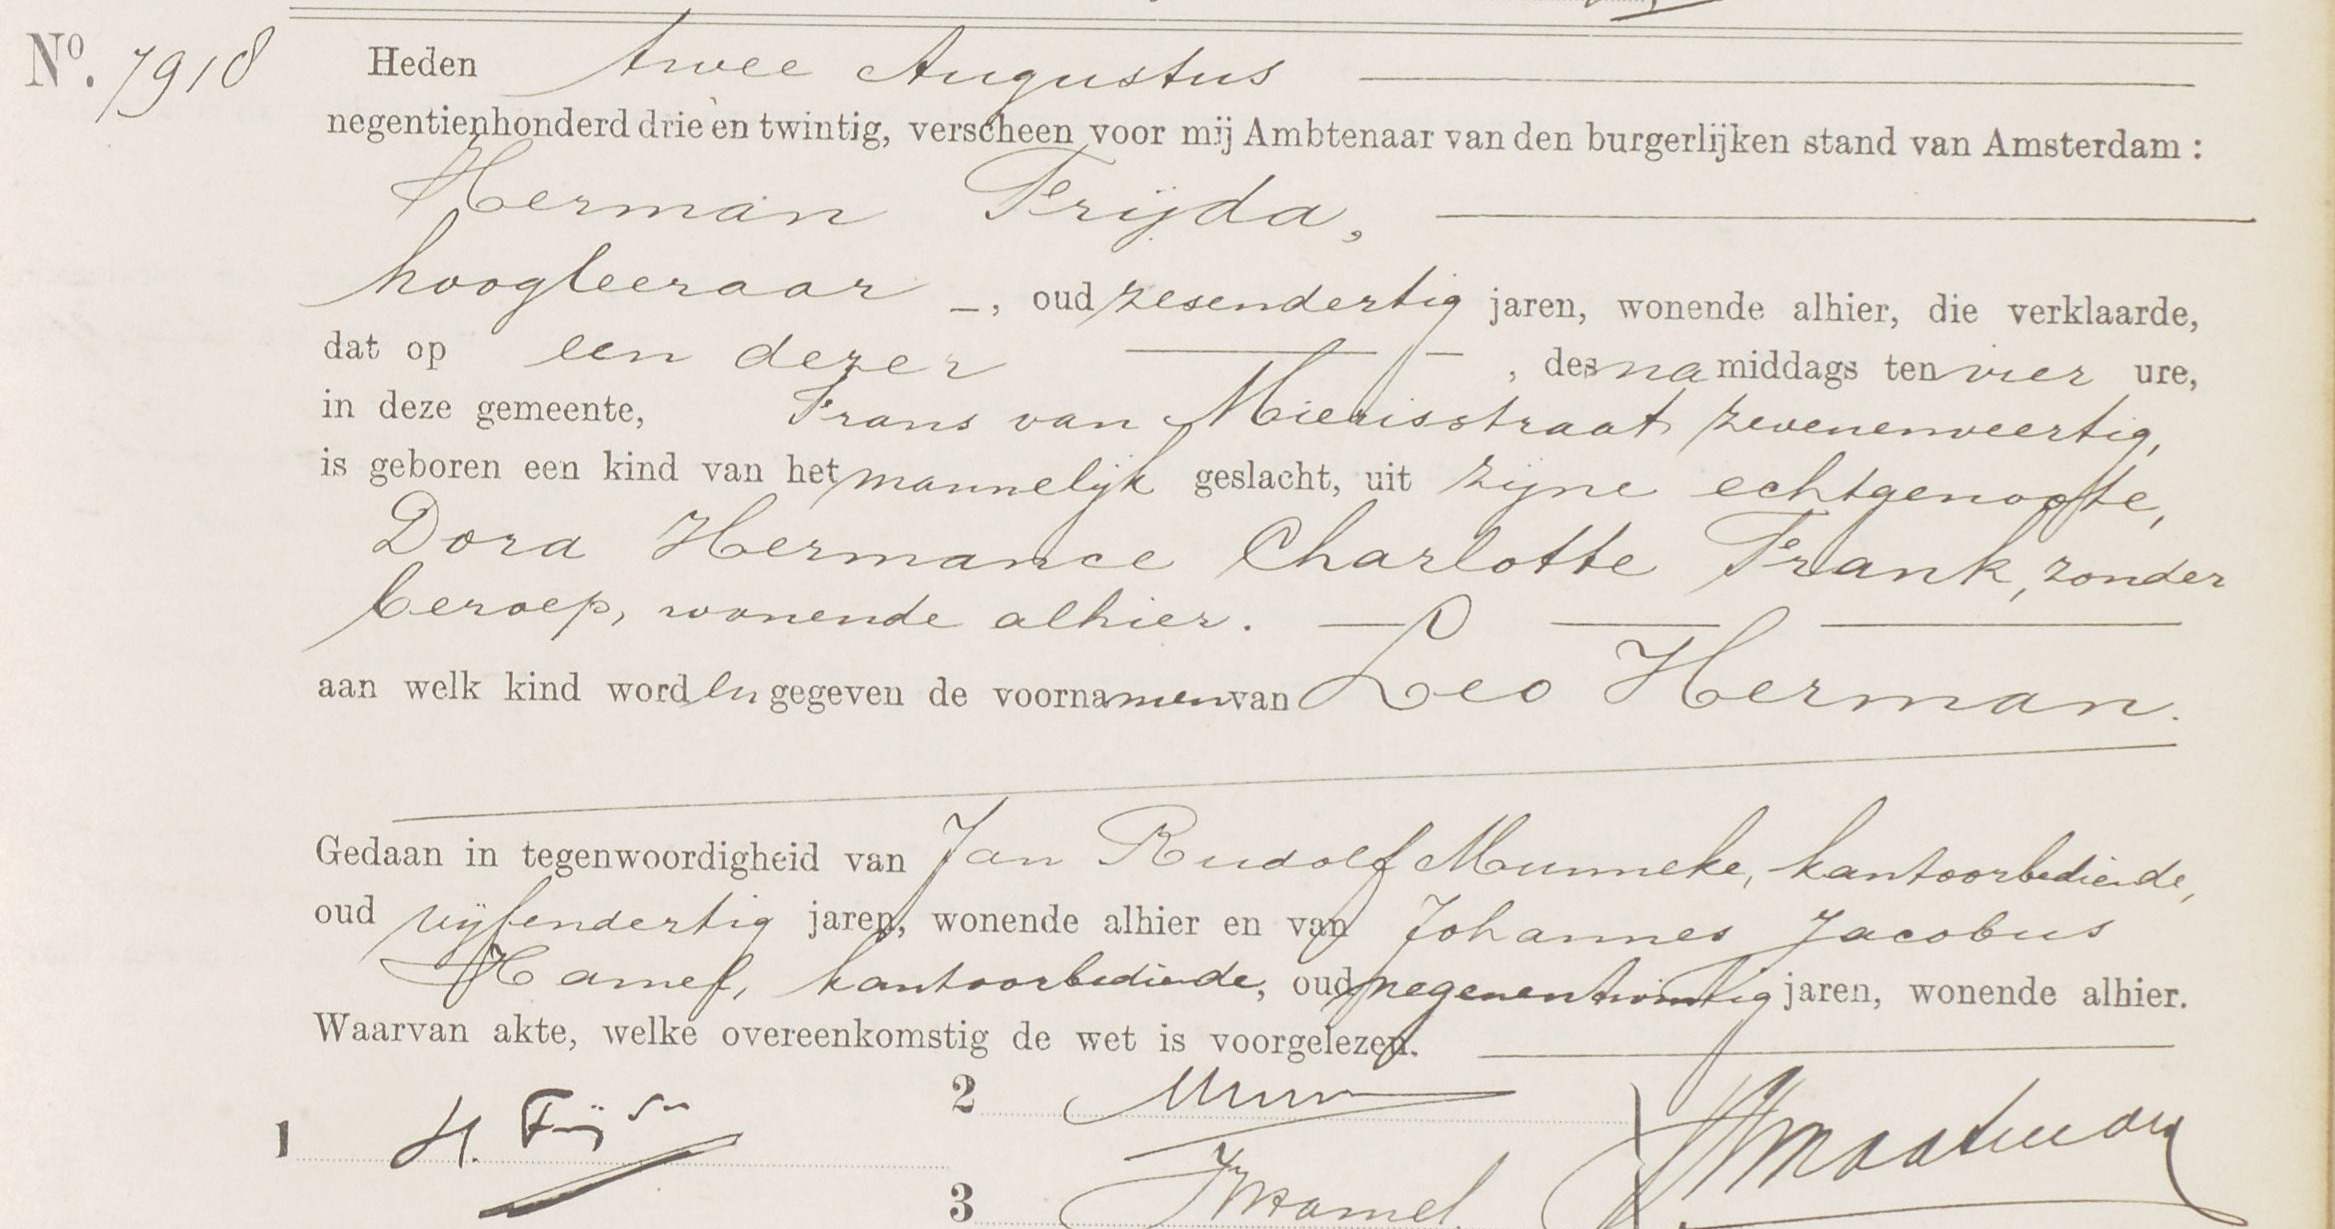 No. 7918 Heden twee Augustus
negentienhonderd drie en twintig, verscheen voor mij Ambtenaar van den burgerlijken stand van Amsterdam :
Herman Frijda,
hoogleeraar —, oud zesendertig jaren, wonende alhier, die verklaarde,
dat op een dezer — , des namiddags ten vier ure,
in deze gemeente, Frans van Mierisstraat zevenenveertig,
is geboren een kind van het mannelijk geslacht, uit zijne echtgenoote,
Dora Hermance Charlotte Frank, zonder
beroep, wonende alhier.
aan welk kind worden gegeven de voornamen van Leo Herman.
Gedaan in tegenwoordigheid van Jan Rudolf Munneke, kantoorbediende,
oud vijfendertig jaren, wonende alhier en van Johannes Jacobus
Hamel, kantoorbediende, oud negenentwintig jaren, wonende alhier.
Waarvan akte, welke overeenkomstig de wet is voorgelezen.
1 H. Frijda
2
3 Hamel